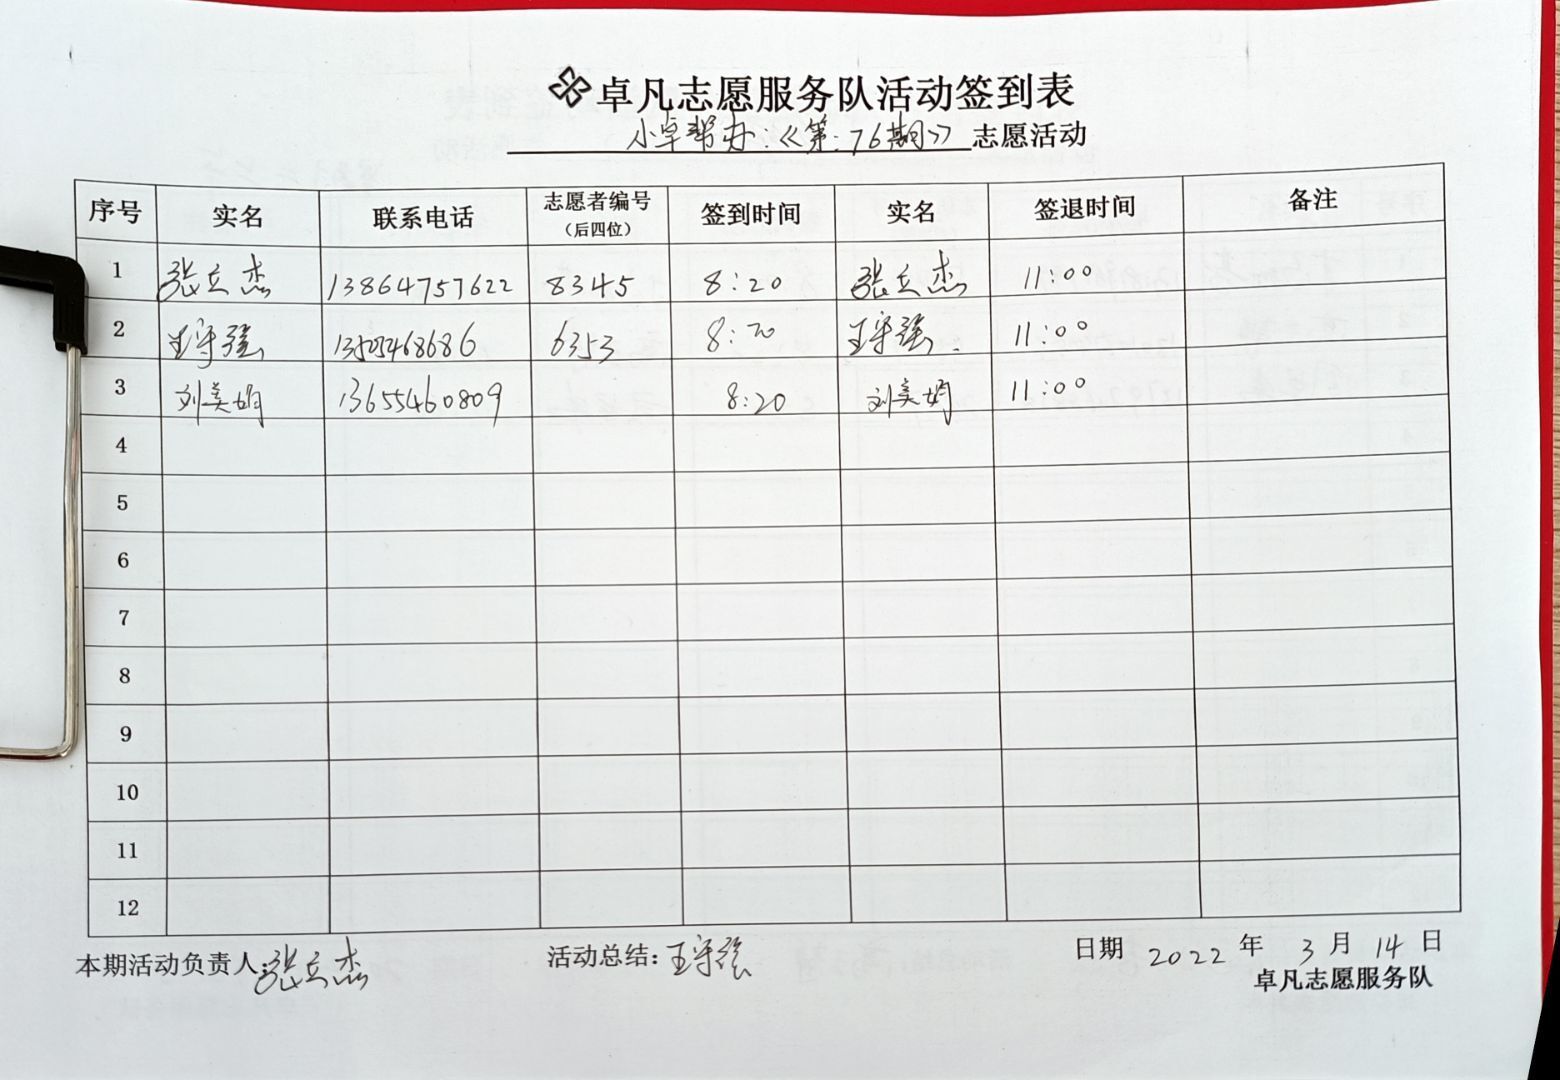 卓凡志愿服务队活动签到表
小卓帮办:《第:76期》志愿活动
序号 实名 联系电话 志愿者编号(后四位) 签到时间 实名 签退时间 备注
1 张立杰 13864757622 8345 8:20 张立杰 11:00
2 王守强 6353 8:20 王守强 11:00
3 刘美娟 13655460809 8:20 刘美娟 11:00
4
5
6
7
8
9
10
11
12
本期活动负责人:张立杰 活动总结:王守强 日期 2022 年 3 月 14 日
卓凡志愿服务队